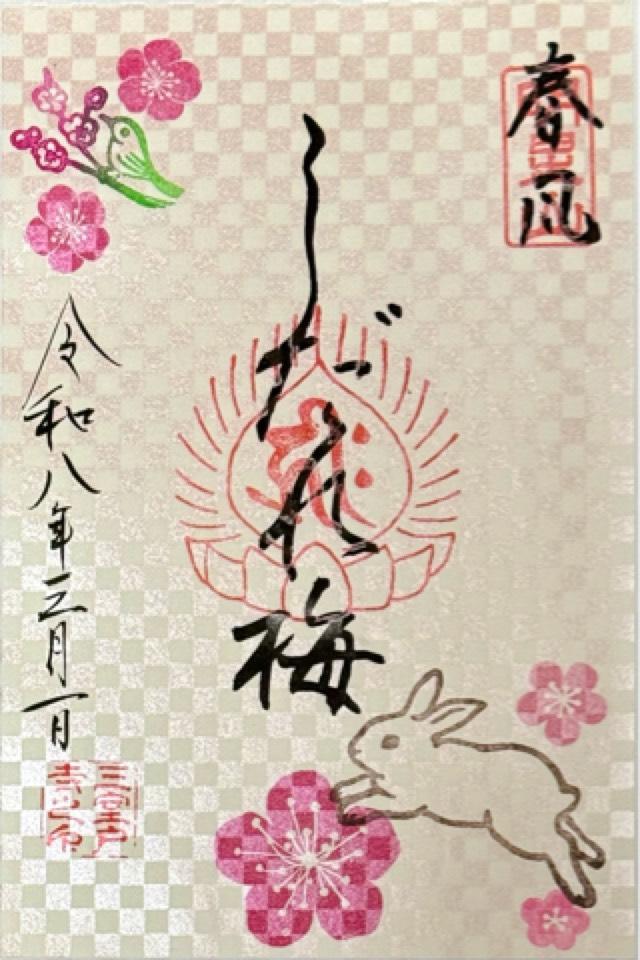 春風
しだれ梅
令和八年三月一日